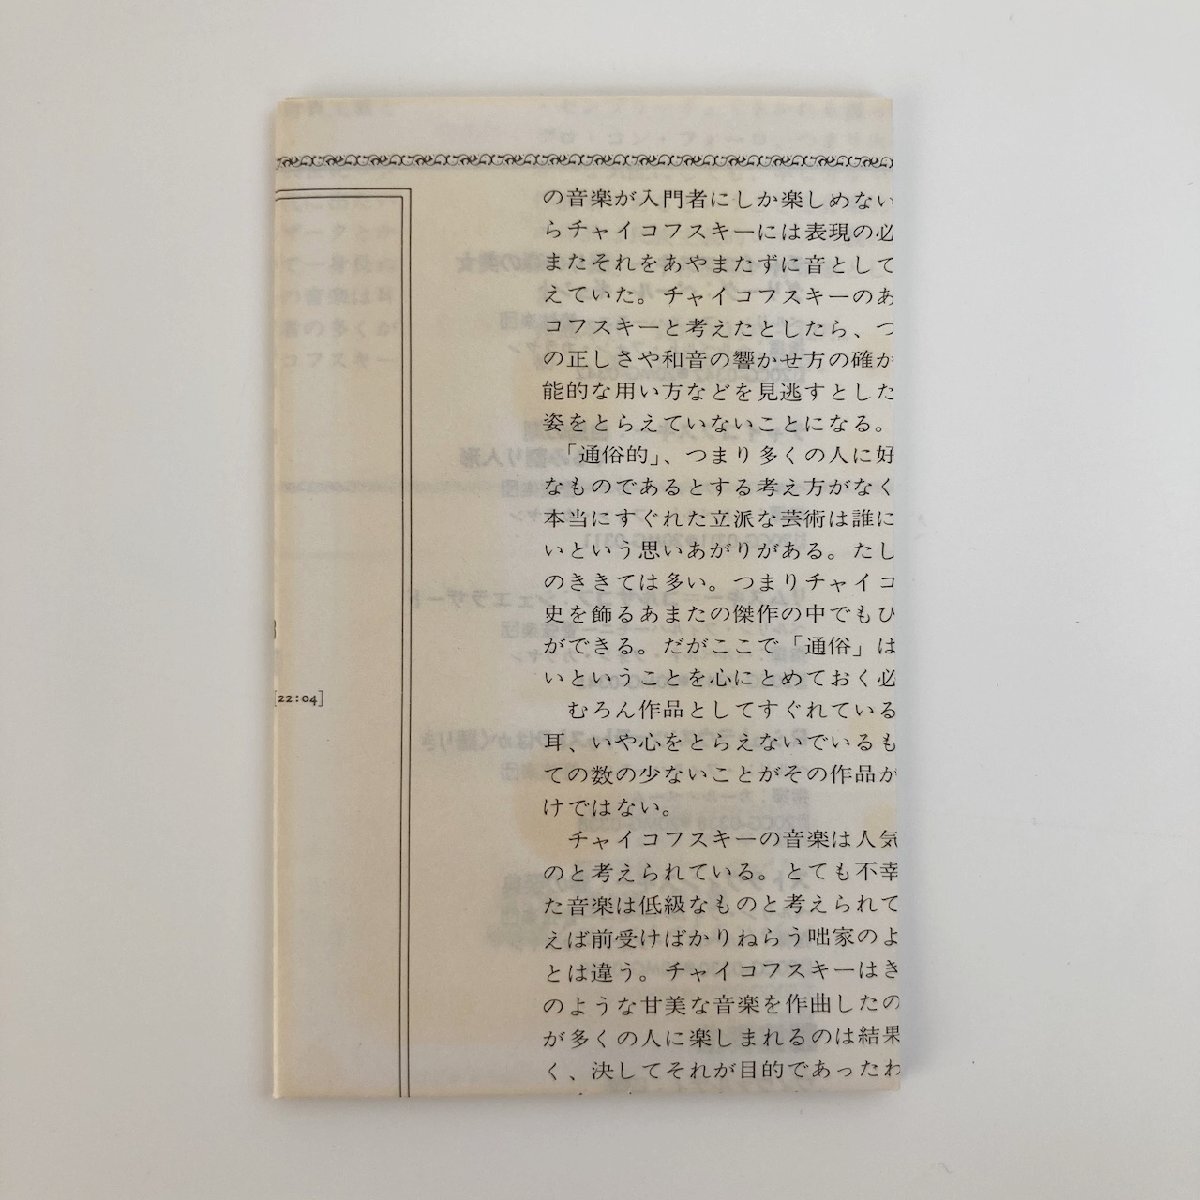 の音楽が入門者にしか楽しめない
らチャイコフスキーには表現の必
またそれをあやまたずに音として
えていた。チャイコフスキーのあ
コフスキーと考えたとしたら、つ
の正しさや和音の響かせ方の確か
能的な用い方などを見逃すとした
姿をとらえていないことになる。
「通俗的」、つまり多くの人に好
なものであるとする考え方がなく
本当にすぐれた立派な芸術は誰に
いという思いあがりがある。たし
のききては多い。つまりチャイコ
史を飾るあまたの傑作の中でもひ
ができる。だがここで「通俗」は
いということを心にとめておく必
むろん作品としてすぐれている
耳、いや心をとらえないでいるも
ての数の少ないことがその作品が
けではない。
チャイコフスキーの音楽は人気
のと考えられている。とても不幸
た音楽は低級なものと考えられて
えば前受けばかりねらう咄家のよ
とは違う。チャイコフスキーはき
のような甘美な音楽を作曲したの
が多くの人に楽しまれるのは結果
く、決してそれが目的であったわ
[22:04]